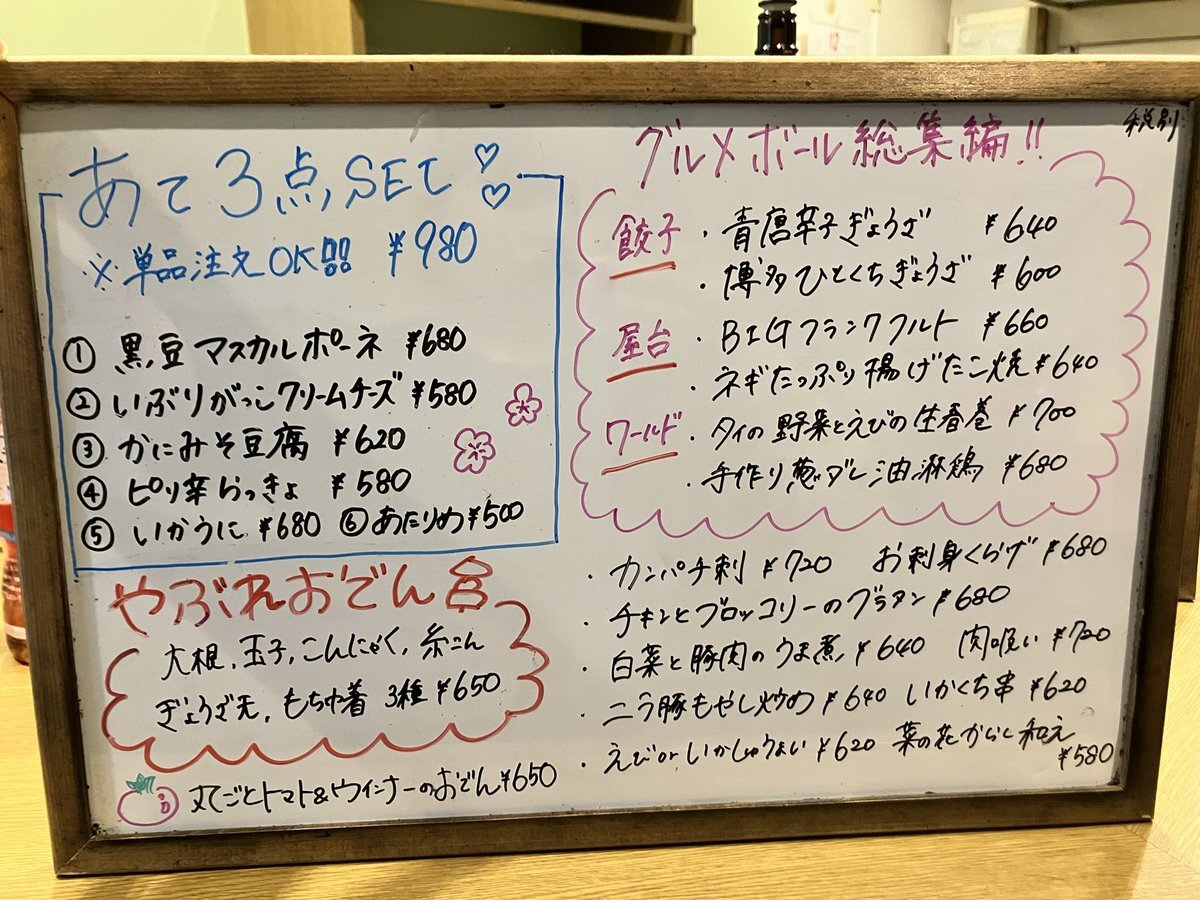 税別
あて3点SET
※単品注文OK ¥980
① 黒豆マスカルポーネ ¥680
② いぶりがっこクリームチーズ ¥580
③ かにみそ豆腐 ¥620
④ ピリ辛らっきょ ¥580
⑤ いかうに ¥680 ⑥ あたりめ ¥500
やぶれおでん
大根、玉子、こんにゃく、糸こん
ぎょうざ天、もち巾着 3種 ¥650
丸ごとトマト&ウインナーのおでん ¥650
グルメボール総集編!!
餃子 ・青唐辛子ぎょうざ ¥640
・博多ひとくちぎょうざ ¥600
屋台 ・BIGフランクフルト ¥660
・ネギたっぷり揚げたこ焼 ¥640
ワールド ・タイの野菜とえびの生春巻 ¥700
・手作り葱ダレ油淋鶏 ¥680
・カンパチ刺 ¥720 お刺身くらげ ¥680
・チキンとブロッコリーのグラタン ¥680
・白菜と豚肉のうま煮 ¥640 肉吸い ¥720
・ニラ豚もやし炒め ¥640 いかくち串 ¥620
・えびorいかしゅうまい ¥620 菜の花からし和え
¥580
12